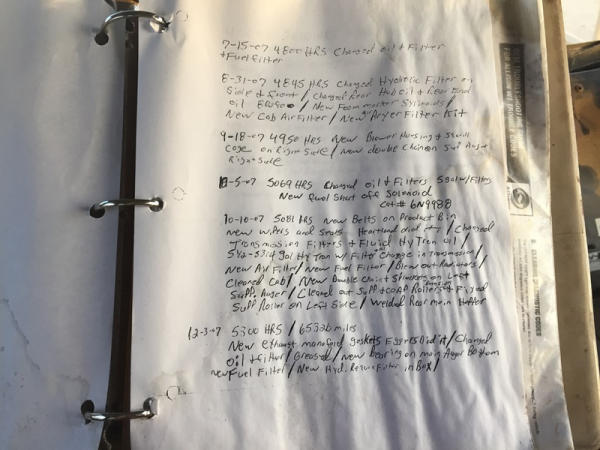 7-15-07 4800 HRS Changed oil + Filter
+ Fuel Filter
8-31-07 4845 HRS Changed Hydrolic Filter on
Side + front / Changed Rear Hub oil + Rear End
oil / New Foam marker Sylinoids /
New Cab Air Filter / New Air Dryer Filter Kit
9-18-07 4950 HRS New Blower Housing +
cage on Right Side / New double Chain on
Right Side
10-5-07 5069 HRS Changed oil + Filters
New Fuel Shut off Solenoid
Cat# 6N9988
10-10-07 5081 HRS New Belts on Product Bin
New wipers and Seats / Changed
Transmission Filters + Fluid HyTran oil /
gal HyTran w/ Filter Change in Transmission /
New Air Filter / New Fuel Filter / Blew out Radiators /
Cleaned Cab / New Double Chain + Sprockets on Left
Suff. Auger / Cleaned out Suff + Rollers + Fixed
Suff Roller on Left Side / Welded Rear main Hopper
12-3-07 5300 HRS / 65326 miles
New exhaust manofold gaskets Eggers Did it / Changed
oil + filter / Greased / New bearing on main Auger Bottom
new Fuel Filter / New Hyd. Return Filter in Box /